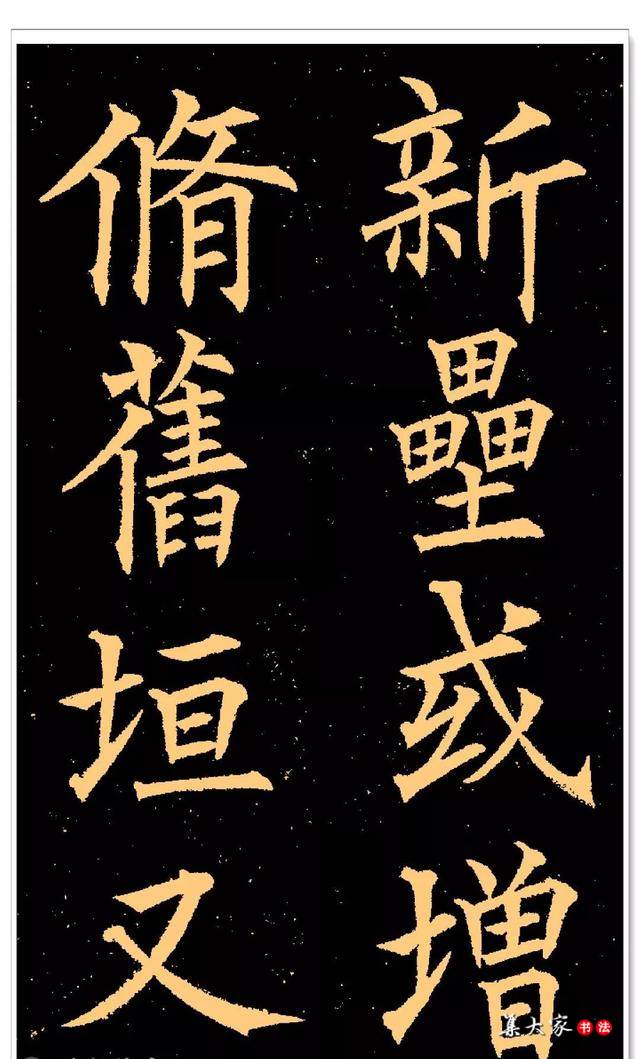 新壘或增
脩舊垣又
集大家书法